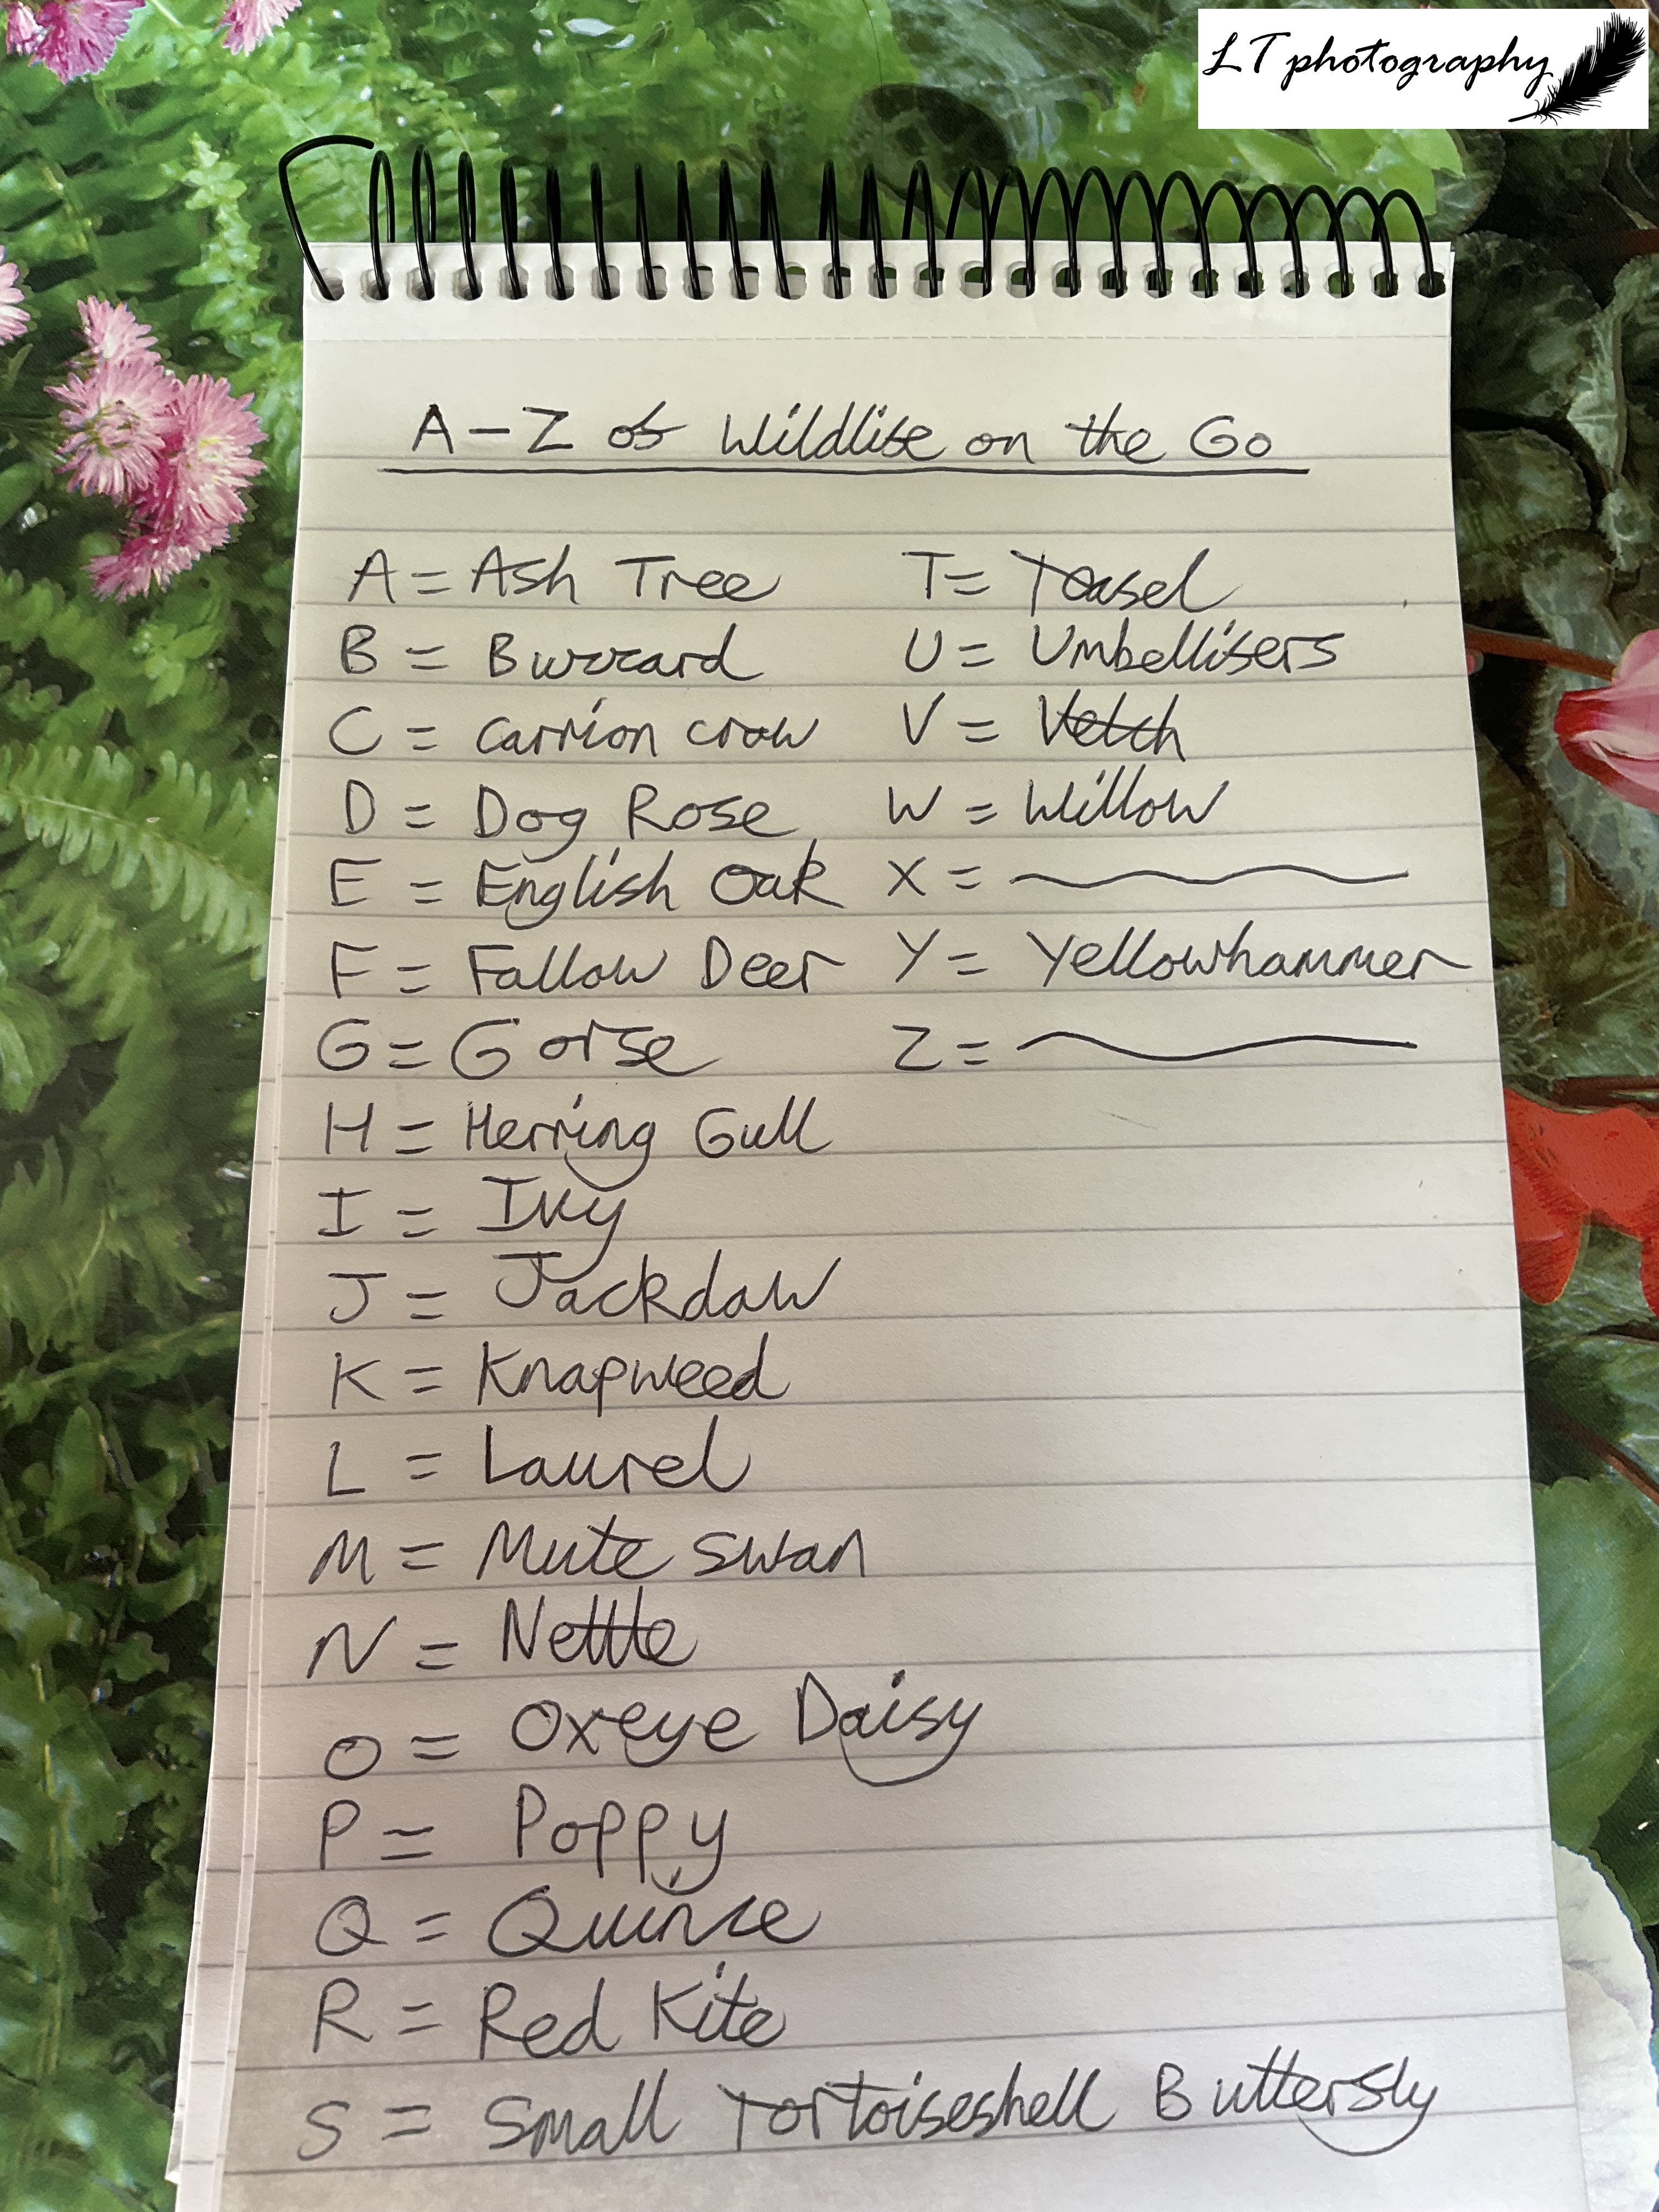 LT photography
A-Z of Wildlife on the Go
A = Ash Tree
B = Buzzard
C = Carrion crow
D = Dog Rose
E = English Oak
F = Fallow Deer
G = Gorse
H = Herring Gull
I = Ivy
J = Jackdaw
K = Knapweed
L = Laurel
M = Mute swan
N = Nettle
O = Oxeye Daisy
P = Poppy
Q = Quince
R = Red Kite
S = Small Tortoiseshell Butterfly
T = Teasel
U = Umbellifers
V = Vetch
W = Willow
X =
Y = Yellowhammer
Z =